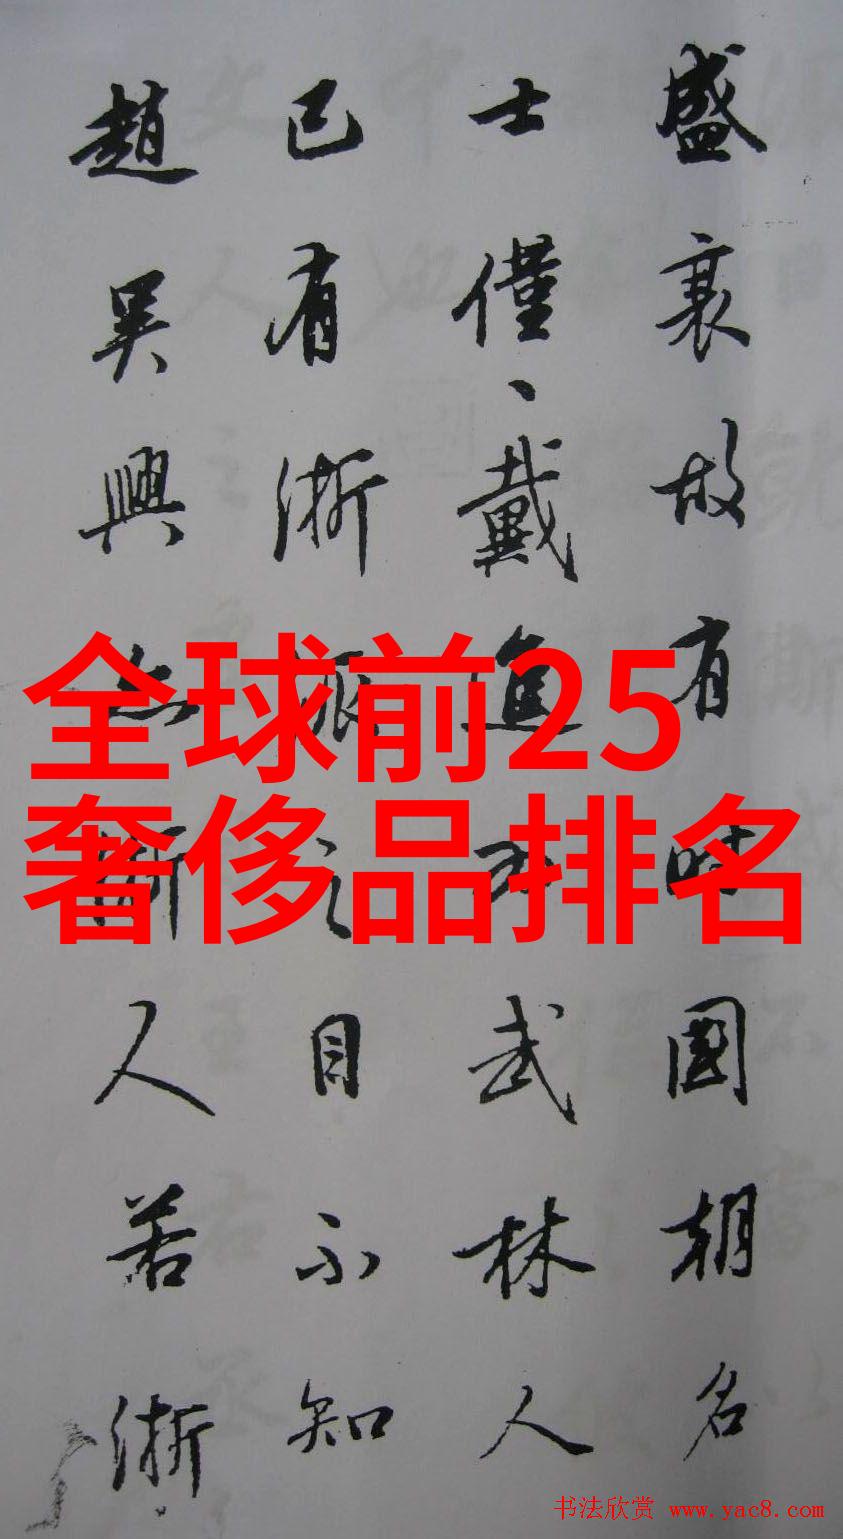 盛衰故有時國朝名
士僅、戴進為武林人
已有浙派之目不知
趙吳興亦浙人若浙
全球前25
奢侈品排名
书法欣赏 www.yac8.com